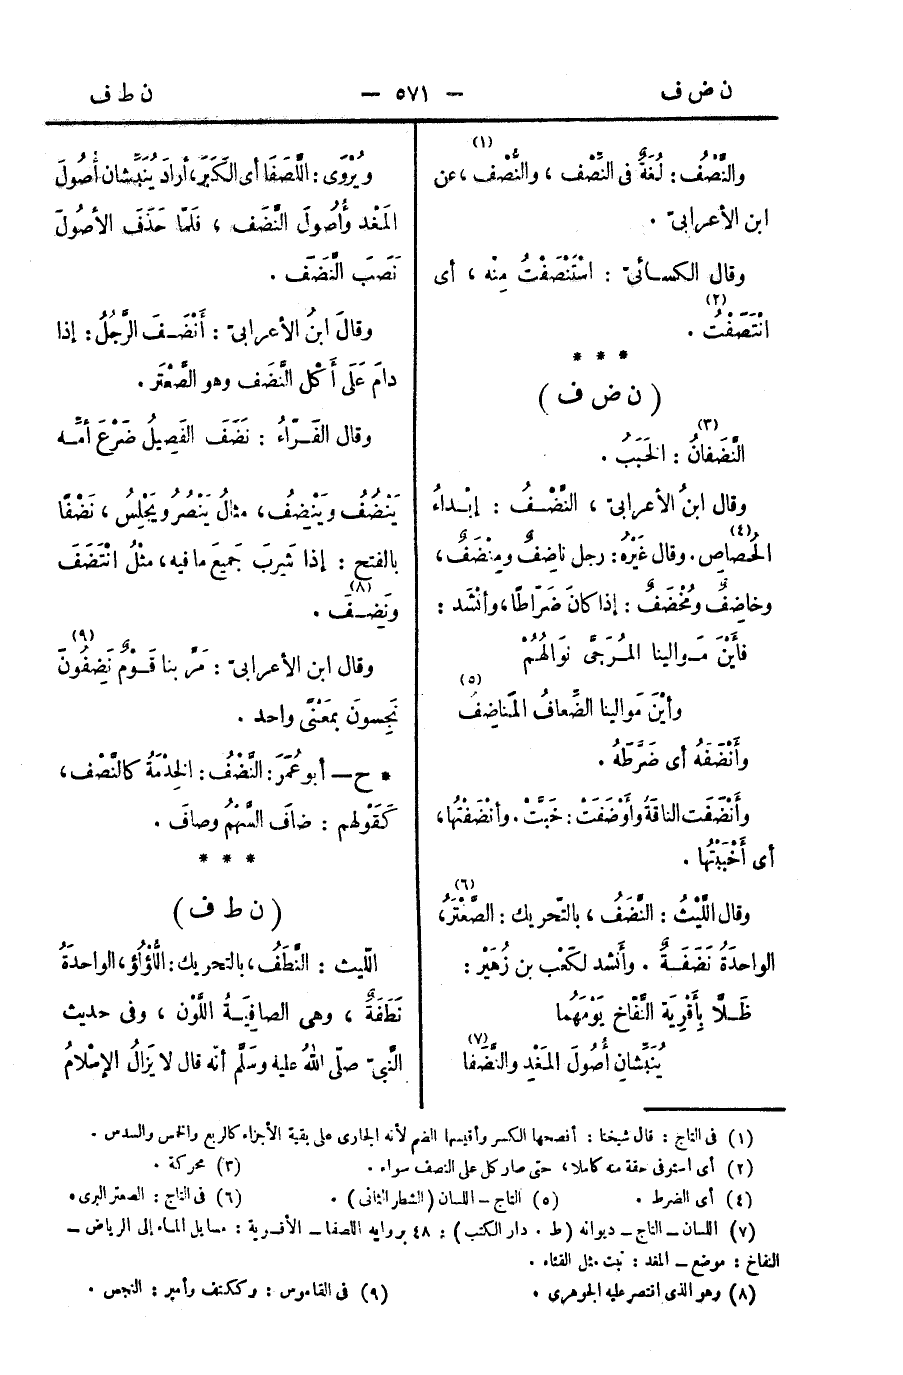 ن ض ف — ٥٧١ — ن ط ف
(١)
والنَّصْفُ : لُغَةٌ فى النِّصْف ، والنُّصْف ، عن
ابن الأعرابىّ .
وقال الكسائىّ : اسْتَنْصَفْتُ مِنْه ، أى
(٢)
انْتَصَفْتُ .
* * *
( ن ض ف )
(٣)
النَّضَفانُ : الخَبَبُ .
وقال ابنُ الأعرابىّ ، النَّضْفُ : إبْداءُ
(٤)
الحُصاصِ . وقال غَيْرُه : رجل ناضِفٌ ومِنْضَفٌ ،
وخاضِفٌ ومُخْضَفٌ : إذا كانَ ضَرّاطًا ، وأنْشَد :
فأَيْنَ مَوالينا المُرَجَّى نَوالُهُمْ
(٥)
وأيْنَ مَوالينا الضِّعافُ المَناضِفُ
وأَنْضَفَهُ أى ضَرَّطَهُ .
وأَنْضَفَت الناقَةُ وأَوْضَفَتْ : خَبَّتْ . وأنضَفْتُها ،
أى أَخْبَبْتُها .
(٦)
وقال اللَّيْثُ : النَّضَفُ ، بالتّحريك : الصَّعْتَرُ ،
الواحدَةُ نَضَفَةٌ . وأَنشد لكَعْب بن زُهَيْر :
ظَلَّا بِأَقْرِيَة النَّفّاخ يَوْمَهُما
(٧)
يُنَبِّشانِ أُصُولَ المَغْدِ والنَّضَفا
ويُرْوَى : اللَّصَفَا أى الكَبَرَ ، أرادَ يُنَبِّشان أُصُولَ
المَغْد وأُصُولَ النَّضَف ، فَلمّا حَذَفَ الأصُولَ
نَصَبَ النَّضَفَ .
وقالَ ابنُ الأعرابىّ : أَنْضَفَ الرَّجُلُ : إذا
دامَ عَلَى أَكْل النَّضَف وهو الصَّعْتَر .
وقال الفَرّاءُ : نَضَفَ الفَصِيلُ ضَرْعَ أمّه
يَنْضُفُ ويَنْضِفُ ، مثالُ يَنْصُرُ ويَجْلِسُ ، نَضْفًا
بالفتح : إذا شَرِبَ جَمِيعَ ما فيه ، مثْلُ انْتَضَفَ
(٨)
ونَضِفَ .
(٩)
وقال ابن الأعرابىّ : مَرَّ بنا قَوْمٌ نَضِفُونَ
نَجِسونَ بمَعْنًى واحد .
* ح — أبو عُمَرَ : النَّضْفُ : الخِدْمَةُ كالنَّصْف ،
كَقَوْلهم : ضافَ السَّهْمُ وصافَ .
* * *
( ن ط ف )
اللّيث : النَّطَفُ ، بالتحريك : اللُّؤْلُؤُ ، الواحدَةُ
نَطَفَةٌ ، وهى الصافِيَةُ اللَّوْن ، وفى حديث
النَّبىّ صلّى اللهُ عليه وسَلَّم أنّه قال لا يَزالُ الإسْلامُ
(١) فى التاج : قال شيخنا : أفصحها الكسر وأقيسها الضم لأنه الجارى على بقية الأجزاء كالربع والخمس والسدس .
(٢) أى استوفى حقه منه كاملا ، حتى صار كل على النصف سواء . (٣) محركة .
(٤) أى الضرط . (٥) التاج — اللسان (الشطر الثانى) . (٦) فى التاج : الصعتر البرى .
(٧) اللسان — التاج — ديوانه (ط . دار الكتب) : ٤٨ بروايه اللصفا — الأقرية : مسايل الماء إلى الرياض —
النفاخ : موضع — المغد : نبت مثل القثاء .
(٨) وهو الذى اقتصر عليه الجوهرى . (٩) فى القاموس : وككتف وأمير : النجس .